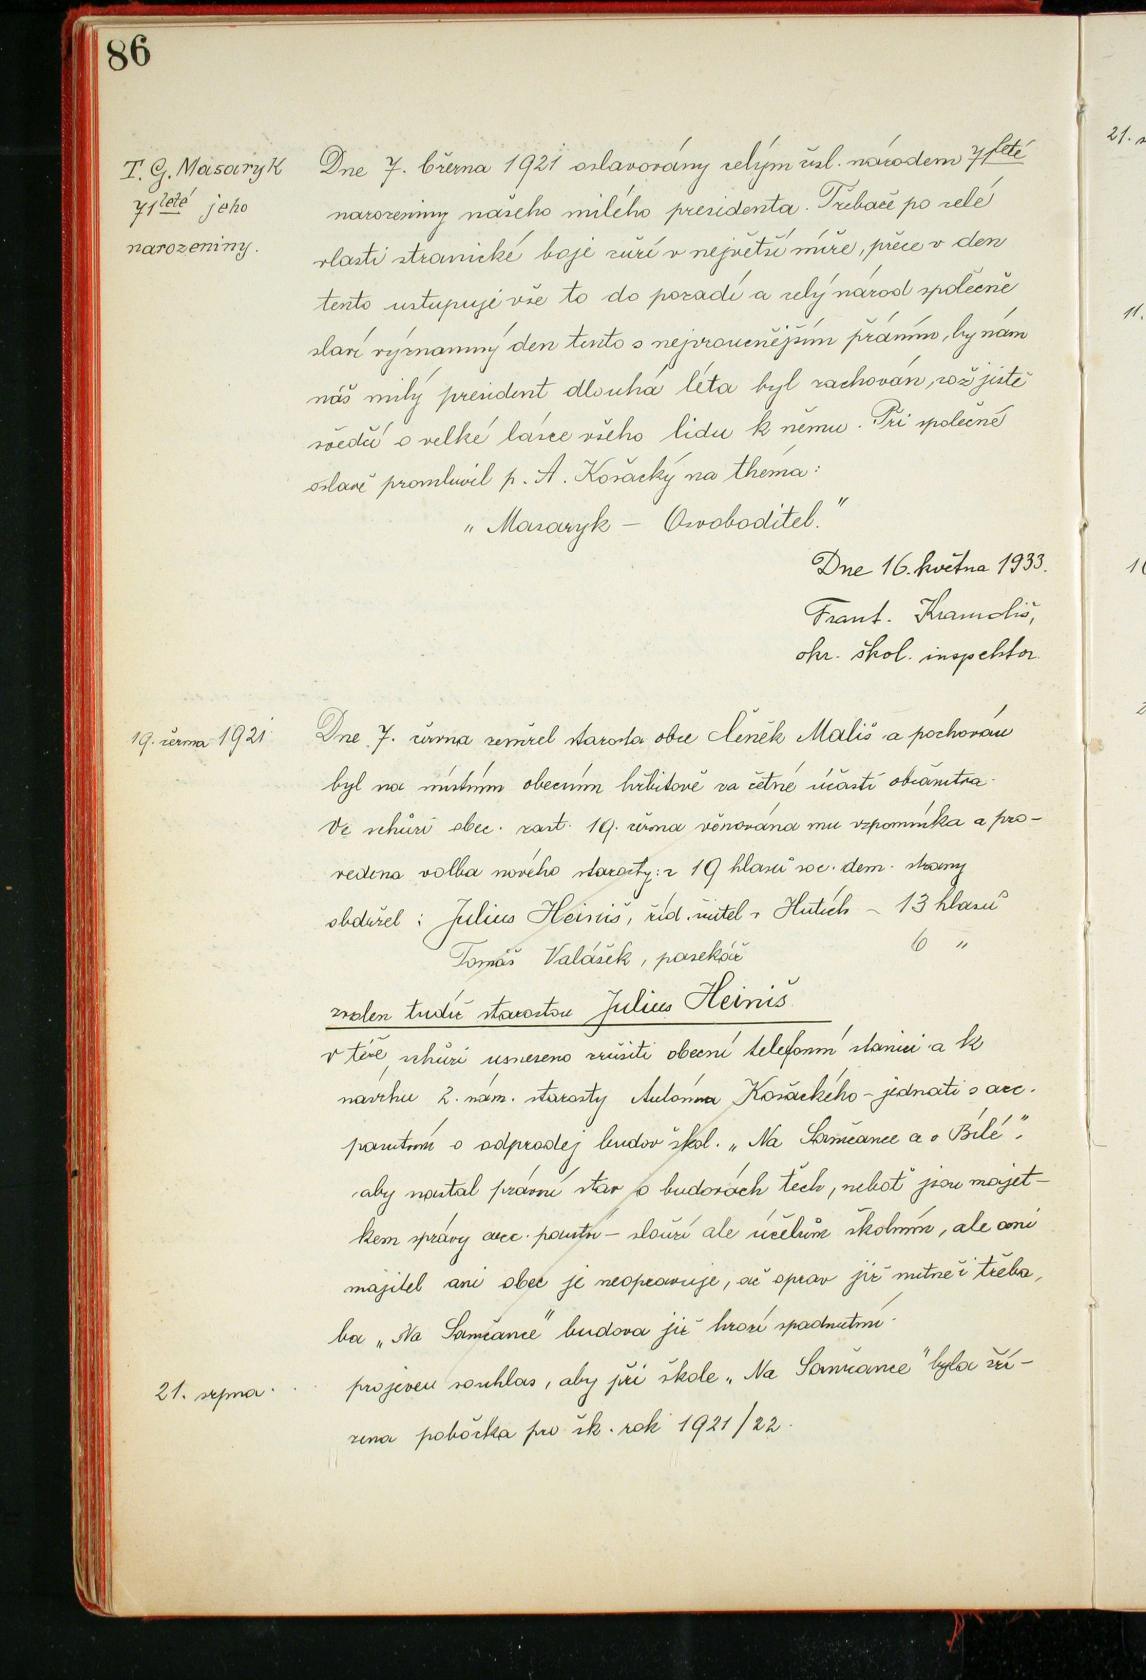 86
T. G. Masaryk
71leté jeho
narozeniny.
Dne 7. března 1921 oslavovány celým čsl. národem 71leté
narozeniny našeho milého presidenta. Třebaže po celé
vlasti stranické boje zuří v největší míře, přece v den
tento ustupuje vše to do pozadí a celý národ společně
slaví významný den tento s nejvroucnějším přáním, by nám
náš milý president dlouhá léta byl zachován, což jistě
svědčí o velké lásce všeho lidu k němu. Při společné
oslavě promluvil p. A. Košacký na thema:
„Masaryk – Osvoboditel."
Dne 16. května 1933.
Frant. Kramoliš,
okr. škol. inspektor.
19. června 1921
Dne 7. června zemřel starosta obce Čeněk Mališ a pochován
byl na místním obecním hřbitově za četné účasti občanstva.
Ve schůzi obec. zast. 19. června věnována mu vzpomínka a pro-
vedena volba nového starosty: z 19 hlasů soc. dem. strany
obdržel: Julius Heiniš, říd. učitel v Hutích – 13 hlasů
Tomáš Valášek, pasekář 6 "
zvolen tudíž starostou Julius Heiniš
v téže schůzi usneseno zrušiti obecní telefonní stanici a k
návrhu 2. nám. starosty Antonína Košackého – jednati s arc.
panstvím o odprodej budov škol. „Na Samčance a v Bílé",
aby nastal právní stav o budovách těch, neboť jsou majet-
kem správy arc. panství – slouží ale účelům školním, ale ani
majitel ani obec je neopravuje, ač oprav již nutně i třeba,
ba „Na Samčance" budova již hrozí spadnutím.
21. srpna.
projeven souhlas, aby při škole „Na Samčance" byla zří-
zena pobočka pro šk. rok 1921/22.
21.
11.